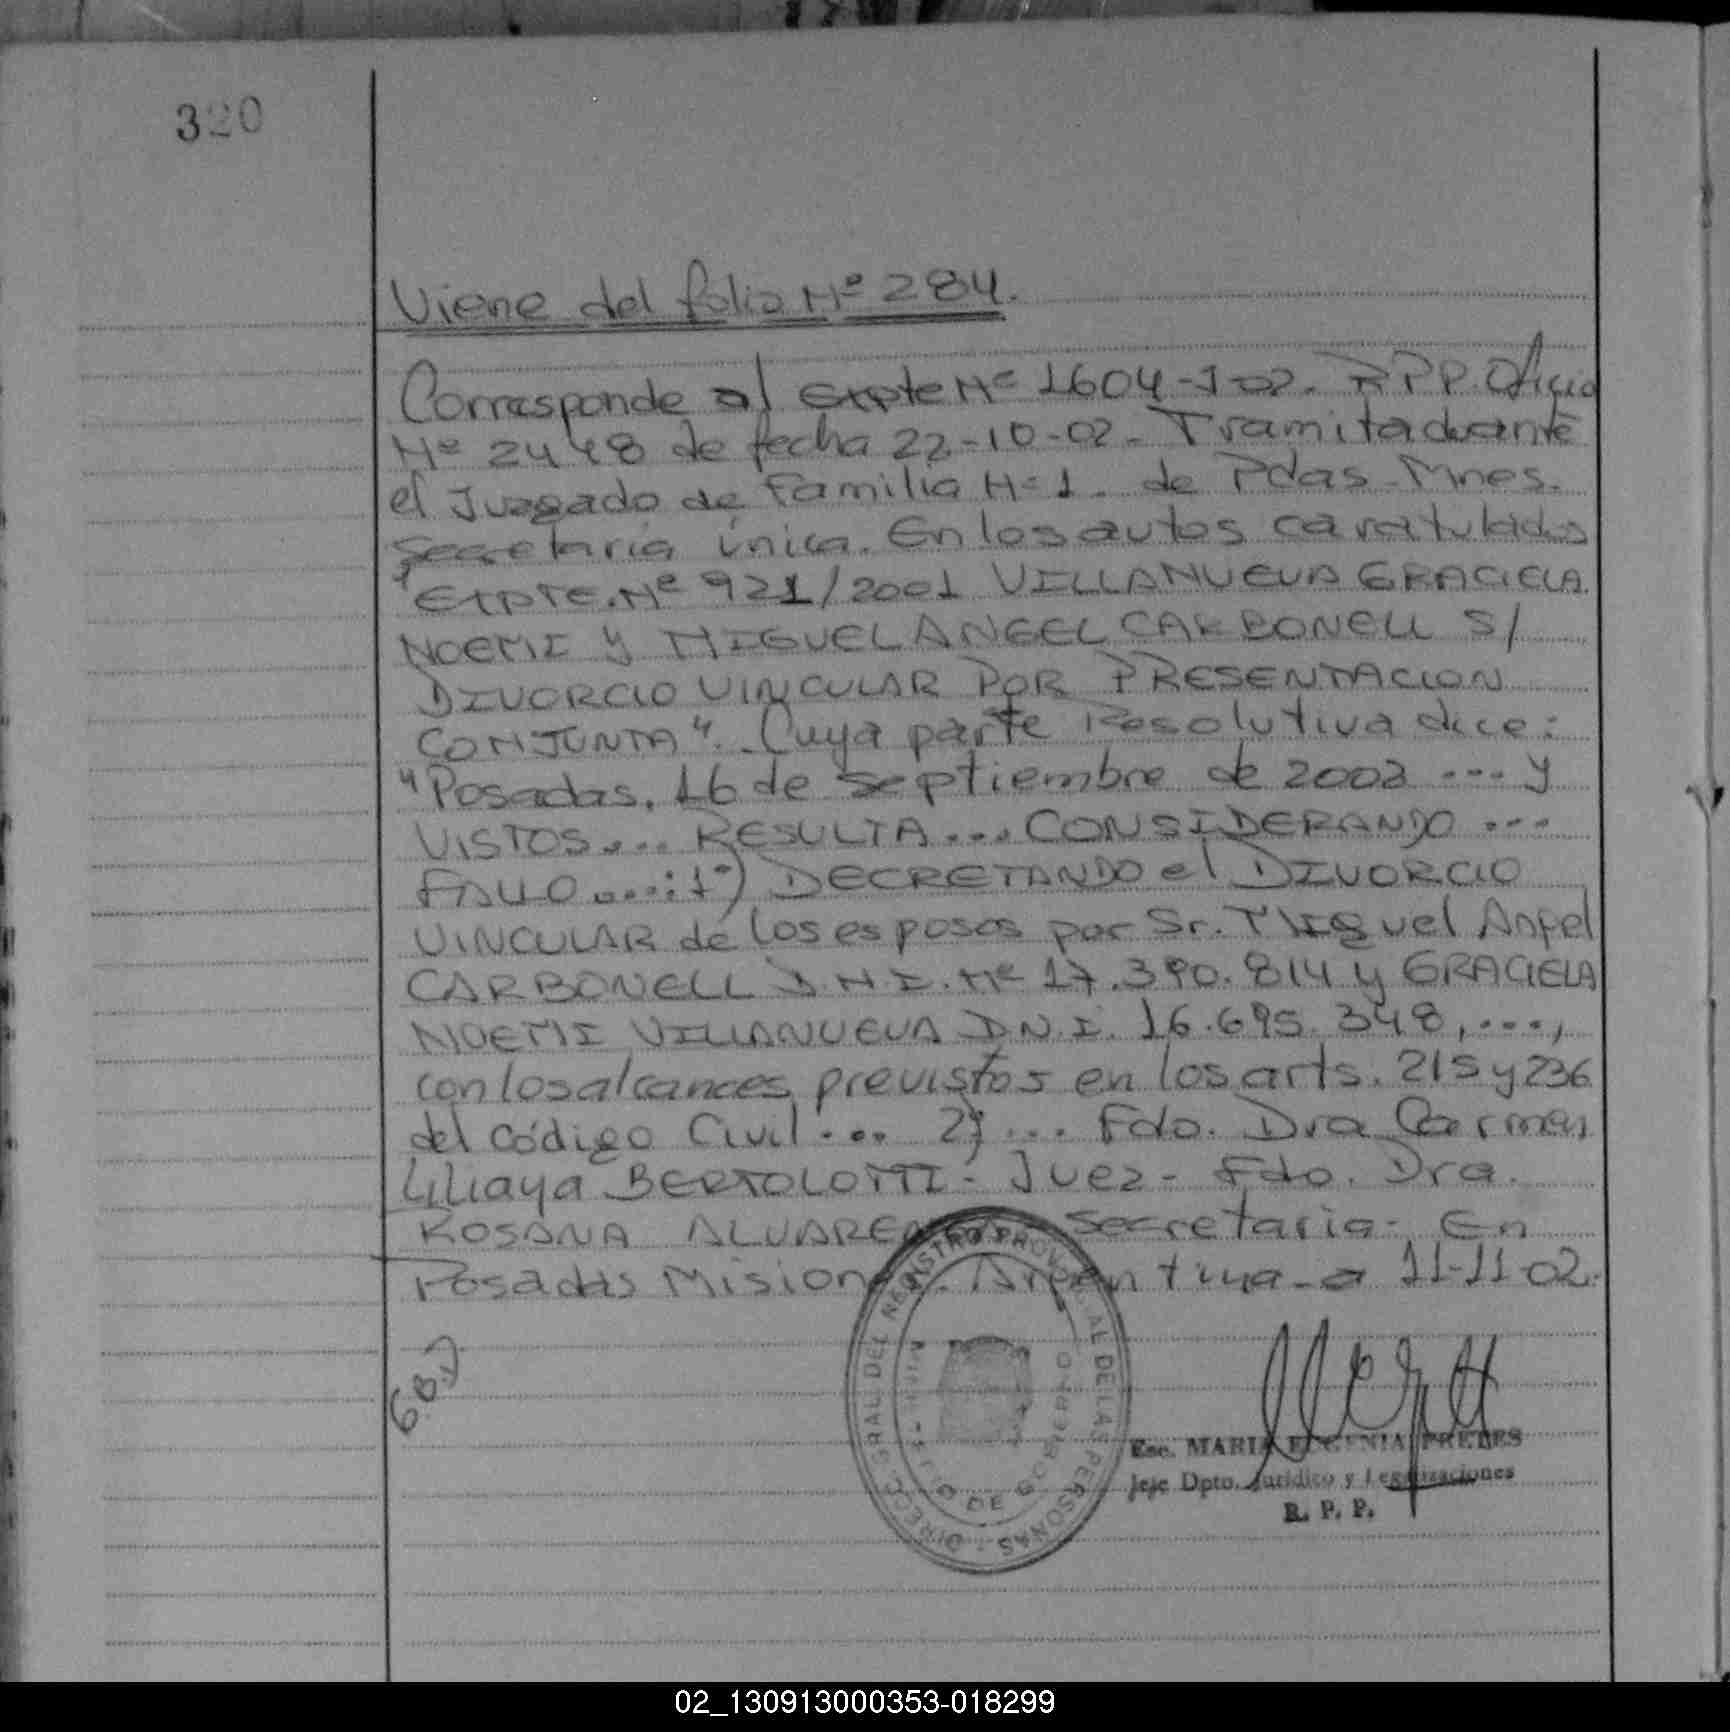 320
Viene del folio Nº 284.
Corresponde al Expte Nº 1604-J-02. RPP. Oficio
Nº 2448 de fecha 22-10-02. Tramitado ante
el Juzgado de Familia Nº 1. de Pdas. Mnes.
Secretaria única. En los autos caratulados
"EXPTE. Nº 921/2001 VILLANUEVA GRACIELA
NOEMI Y MIGUEL ANGEL CARBONELL S/
DIVORCIO VINCULAR POR PRESENTACION
CONJUNTA". Cuya parte Resolutiva dice:
"Posadas, 16 de septiembre de 2002 ... y
VISTOS... RESULTA... CONSIDERANDO ...
FALLO...: 1º) DECRETANDO el DIVORCIO
VINCULAR de los esposos por Sr. Miguel Angel
CARBONELL D.N.I. Nº 17.390.814 y GRACIELA
NOEMI VILLANUEVA D.N.I. 16.695.348, ...,
con los alcances previstos en los arts. 215 y 236
del código Civil ... 2) ... Fdo. Dra Carmen
Liliaya BERTOLOTTI - Juez - Fdo. Dra.
ROSANA ALVARENGA Secretaria - En
Posadas Misiones. Argentina - a 11-11-02.
DIRECC. GRAL DEL REGISTRO PROVINCIAL DE LAS PERSONAS
DE GOBIERNO
Esc. MARIA EUGENIA PRETES
Jefe Dpto. Jurídico y Legalizaciones
R. P. P.
02_130913000353-018299